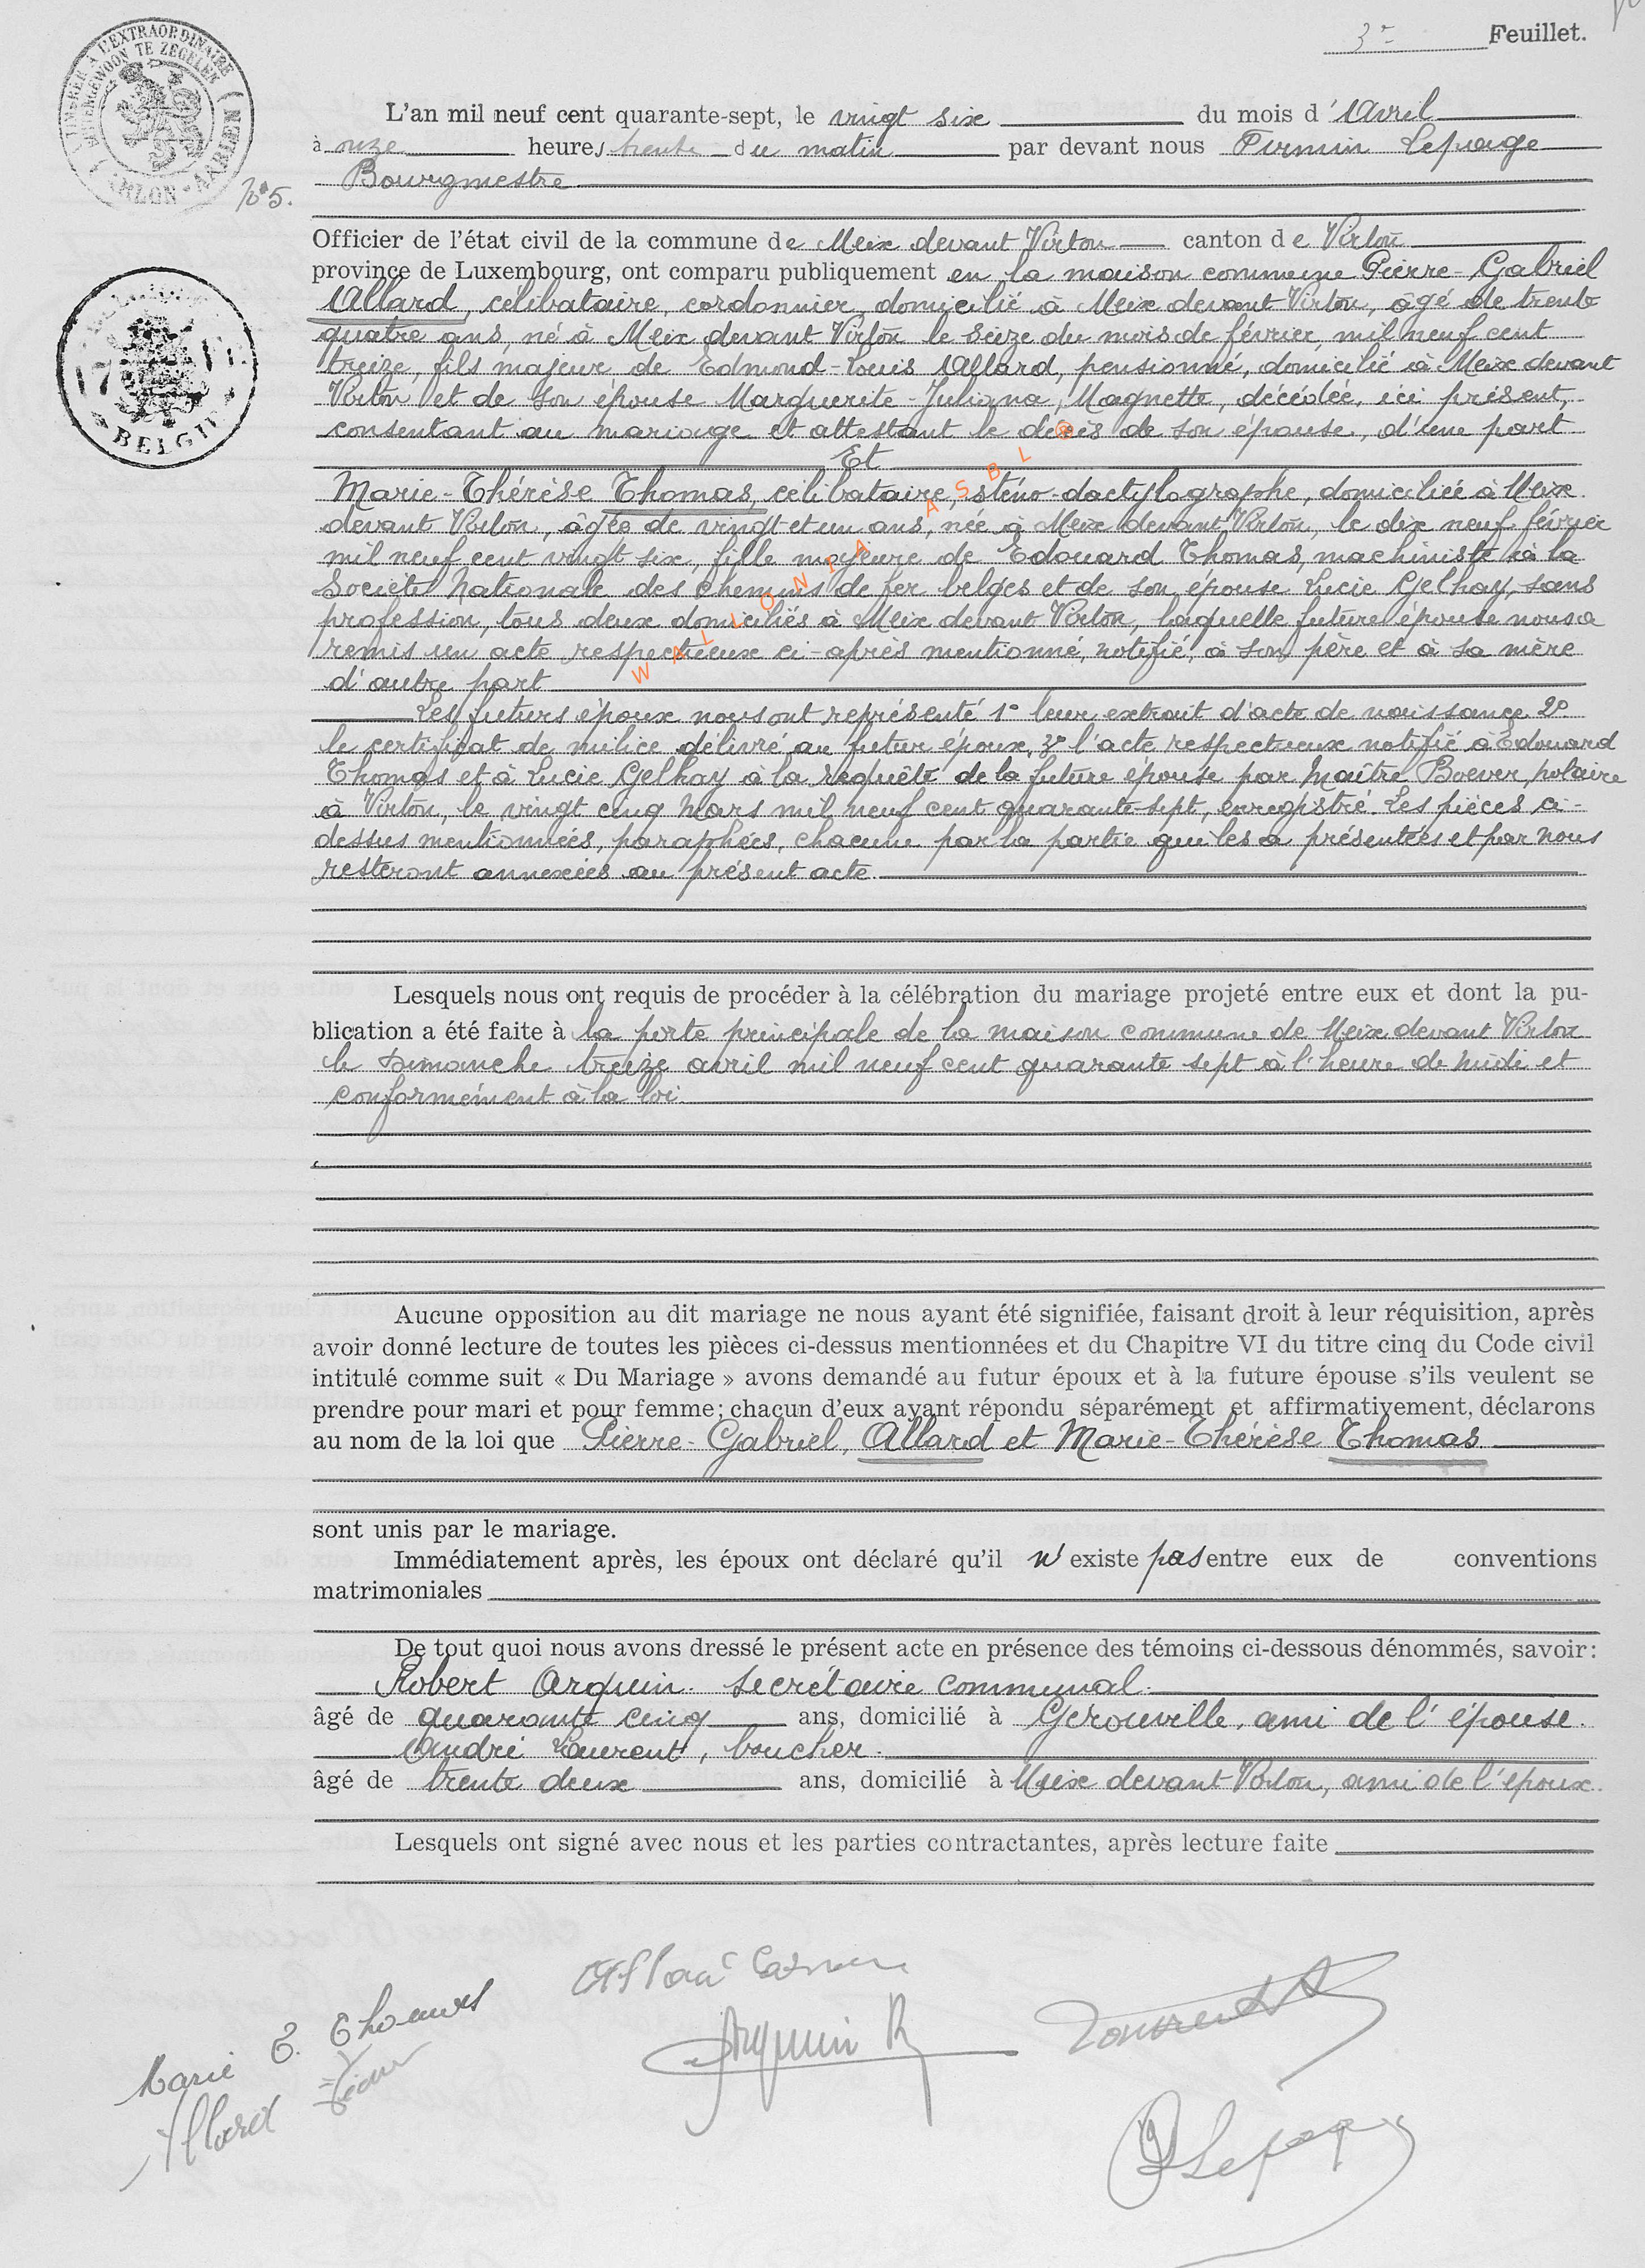 3e Feuillet.
TIMBRE A L'EXTRAORDINAIRE
BUITENGEWOON TE ZEGELEN
ARLON - AARLEN
N°5.
L'an mil neuf cent quarante-sept, le vingt six du mois d'Avril
à onze heures trente du matin par devant nous Firmin Lepage
Bourgmestre
Officier de l'état civil de la commune de Meix devant Virton canton de Virton
province de Luxembourg, ont comparu publiquement en la maison commune Pierre-Gabriel
Allard, célibataire, cordonnier, domicilié à Meix devant Virton, âgé de trente
quatre ans, né à Meix devant Virton le seize du mois de février, mil neuf cent
treize, fils majeur de Edmond-Louis Allard, pensionné, domicilié à Meix devant
Virton et de son épouse Marguerite-Juliana, Magnette, décédée, ici présent,
consentant au mariage et attestant le décès de son épouse, d'une part
Et
Marie-Thérèse Thomas, célibataire, sténo-dactylographe, domiciliée à Meix
devant Virton, âgée de vingt et un ans, née à Meix devant Virton, le dix neuf février
mil neuf cent vingt six, fille majeure de Edouard Thomas, machiniste à la
Société Nationale des chemins de fer belges et de son épouse Lucie Gelhay, sans
profession, tous deux domiciliés à Meix devant Virton, laquelle future épouse nous a
remis un acte respectueux ci-après mentionné, notifié, à son père et à sa mère
d'autre part
Les futurs époux nous ont représenté 1° leur extrait d'acte de naissance 2°
le certificat de milice délivré au futur époux, 3° l'acte respectueux notifié à Edouard
Thomas et à Lucie Gelhay à la requête de la future épouse par Maître Boever, notaire
à Virton, le vingt cinq Mars mil neuf cent quarante-sept, enregistré. Les pièces ci-
dessus mentionnées, paraphées, chacune par la partie qui les a présentées et par nous
resteront annexées au présent acte.
WALLONIA ASBL ®
BELGIË
Lesquels nous ont requis de procéder à la célébration du mariage projeté entre eux et dont la pu-
blication a été faite à la porte principale de la maison commune de Meix devant Virton
le Dimanche treize avril mil neuf cent quarante sept à l'heure de midi et
conformément à la loi.
Aucune opposition au dit mariage ne nous ayant été signifiée, faisant droit à leur réquisition, après
avoir donné lecture de toutes les pièces ci-dessus mentionnées et du Chapitre VI du titre cinq du Code civil
intitulé comme suit « Du Mariage » avons demandé au futur époux et à la future épouse s'ils veulent se
prendre pour mari et pour femme; chacun d'eux ayant répondu séparément et affirmativement, déclarons
au nom de la loi que Pierre-Gabriel, Allard et Marie-Thérèse Thomas
sont unis par le mariage.
Immédiatement après, les époux ont déclaré qu'il n'existe pas entre eux de conventions
matrimoniales
De tout quoi nous avons dressé le présent acte en présence des témoins ci-dessous dénommés, savoir:
Robert Arquin. secrétaire communal.
âgé de quarante cinq ans, domicilié à Gérouville, ami de l'épouse.
André Laurent, boucher.
âgé de trente deux ans, domicilié à Meix devant Virton, ami de l'époux.
Lesquels ont signé avec nous et les parties contractantes, après lecture faite
Marie T. Thomas
Allard
Arquin R
Laurent A
Lepage